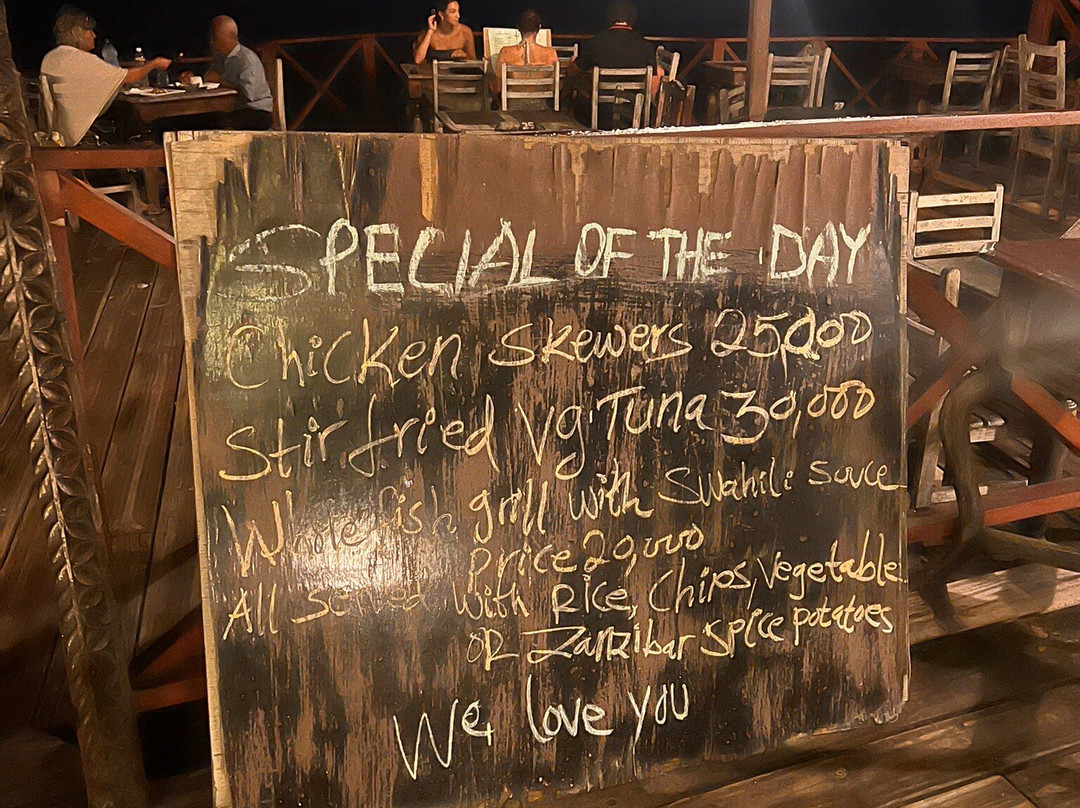 SPECIAL OF THE DAY
Chicken Skewers 25,000
Stir fried Vg Tuna 30,000
Whole fish grill with Swahili Souce
price 20,000
All served with Rice, Chips, Vegetable
OR Zanzibar spice potatoes
We love you
25